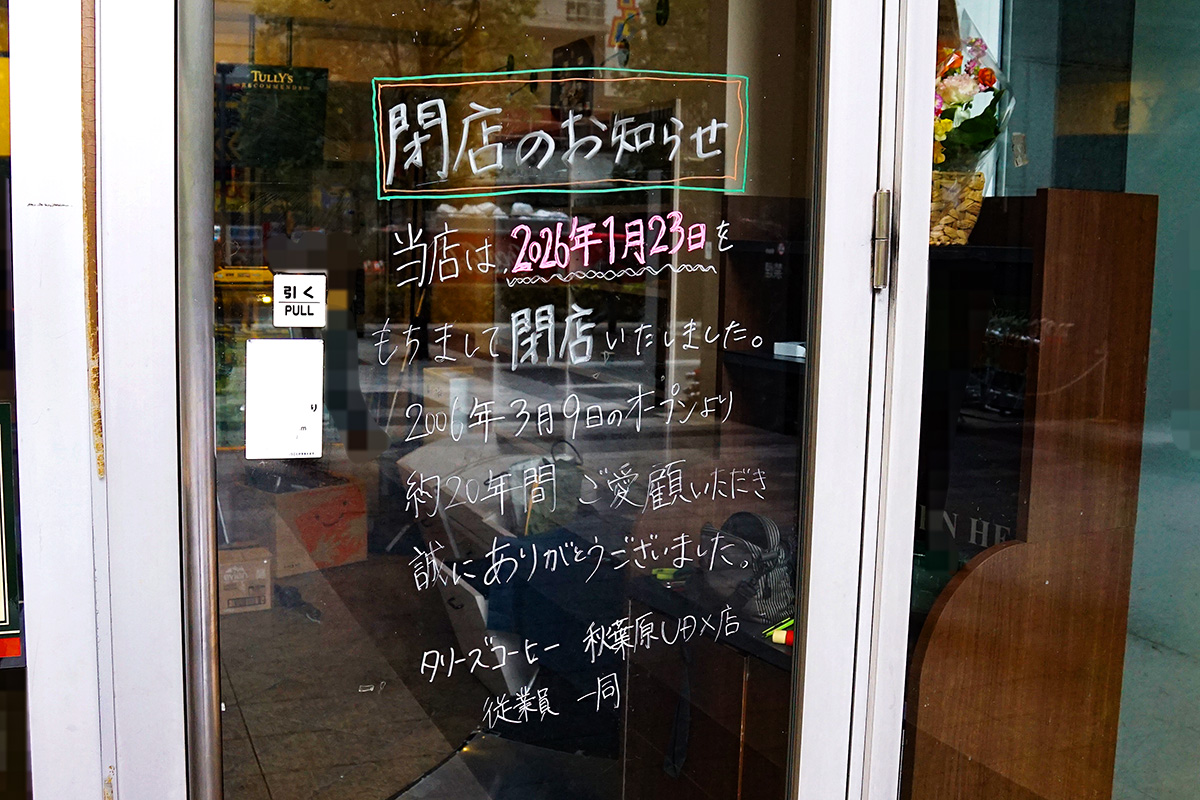 TULLY'S
RECOMMENDS
閉店のお知らせ
当店は、2026年1月23日を
もちまして閉店いたしました。
2006年3月9日のオープンより
約20年間 ご愛顧いただき
誠にありがとうございました。
タリーズコーヒー 秋葉原UDX店
従業員 一同
引く
PULL
り
m
IN HE